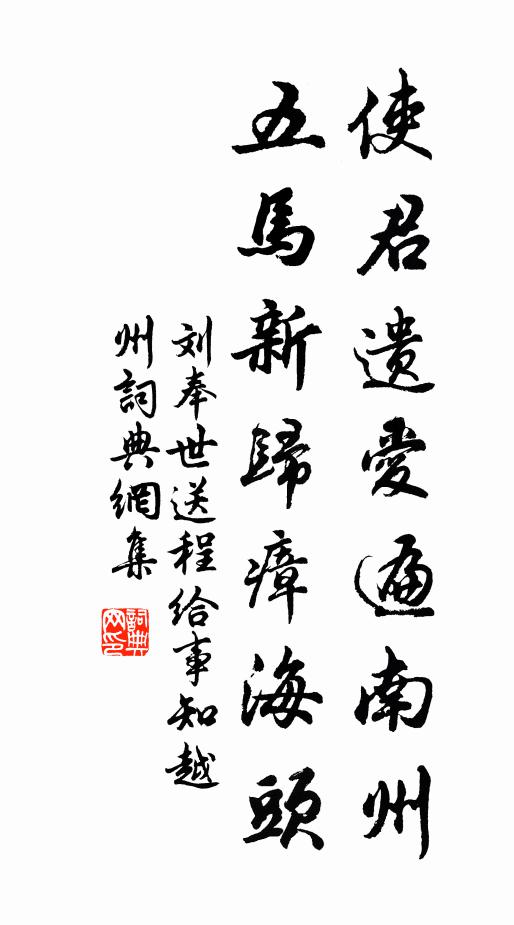 使君遺愛遍南州
五馬新歸瘴海頭
刘奉世送程给事知越
州詞典網集
詞典網印